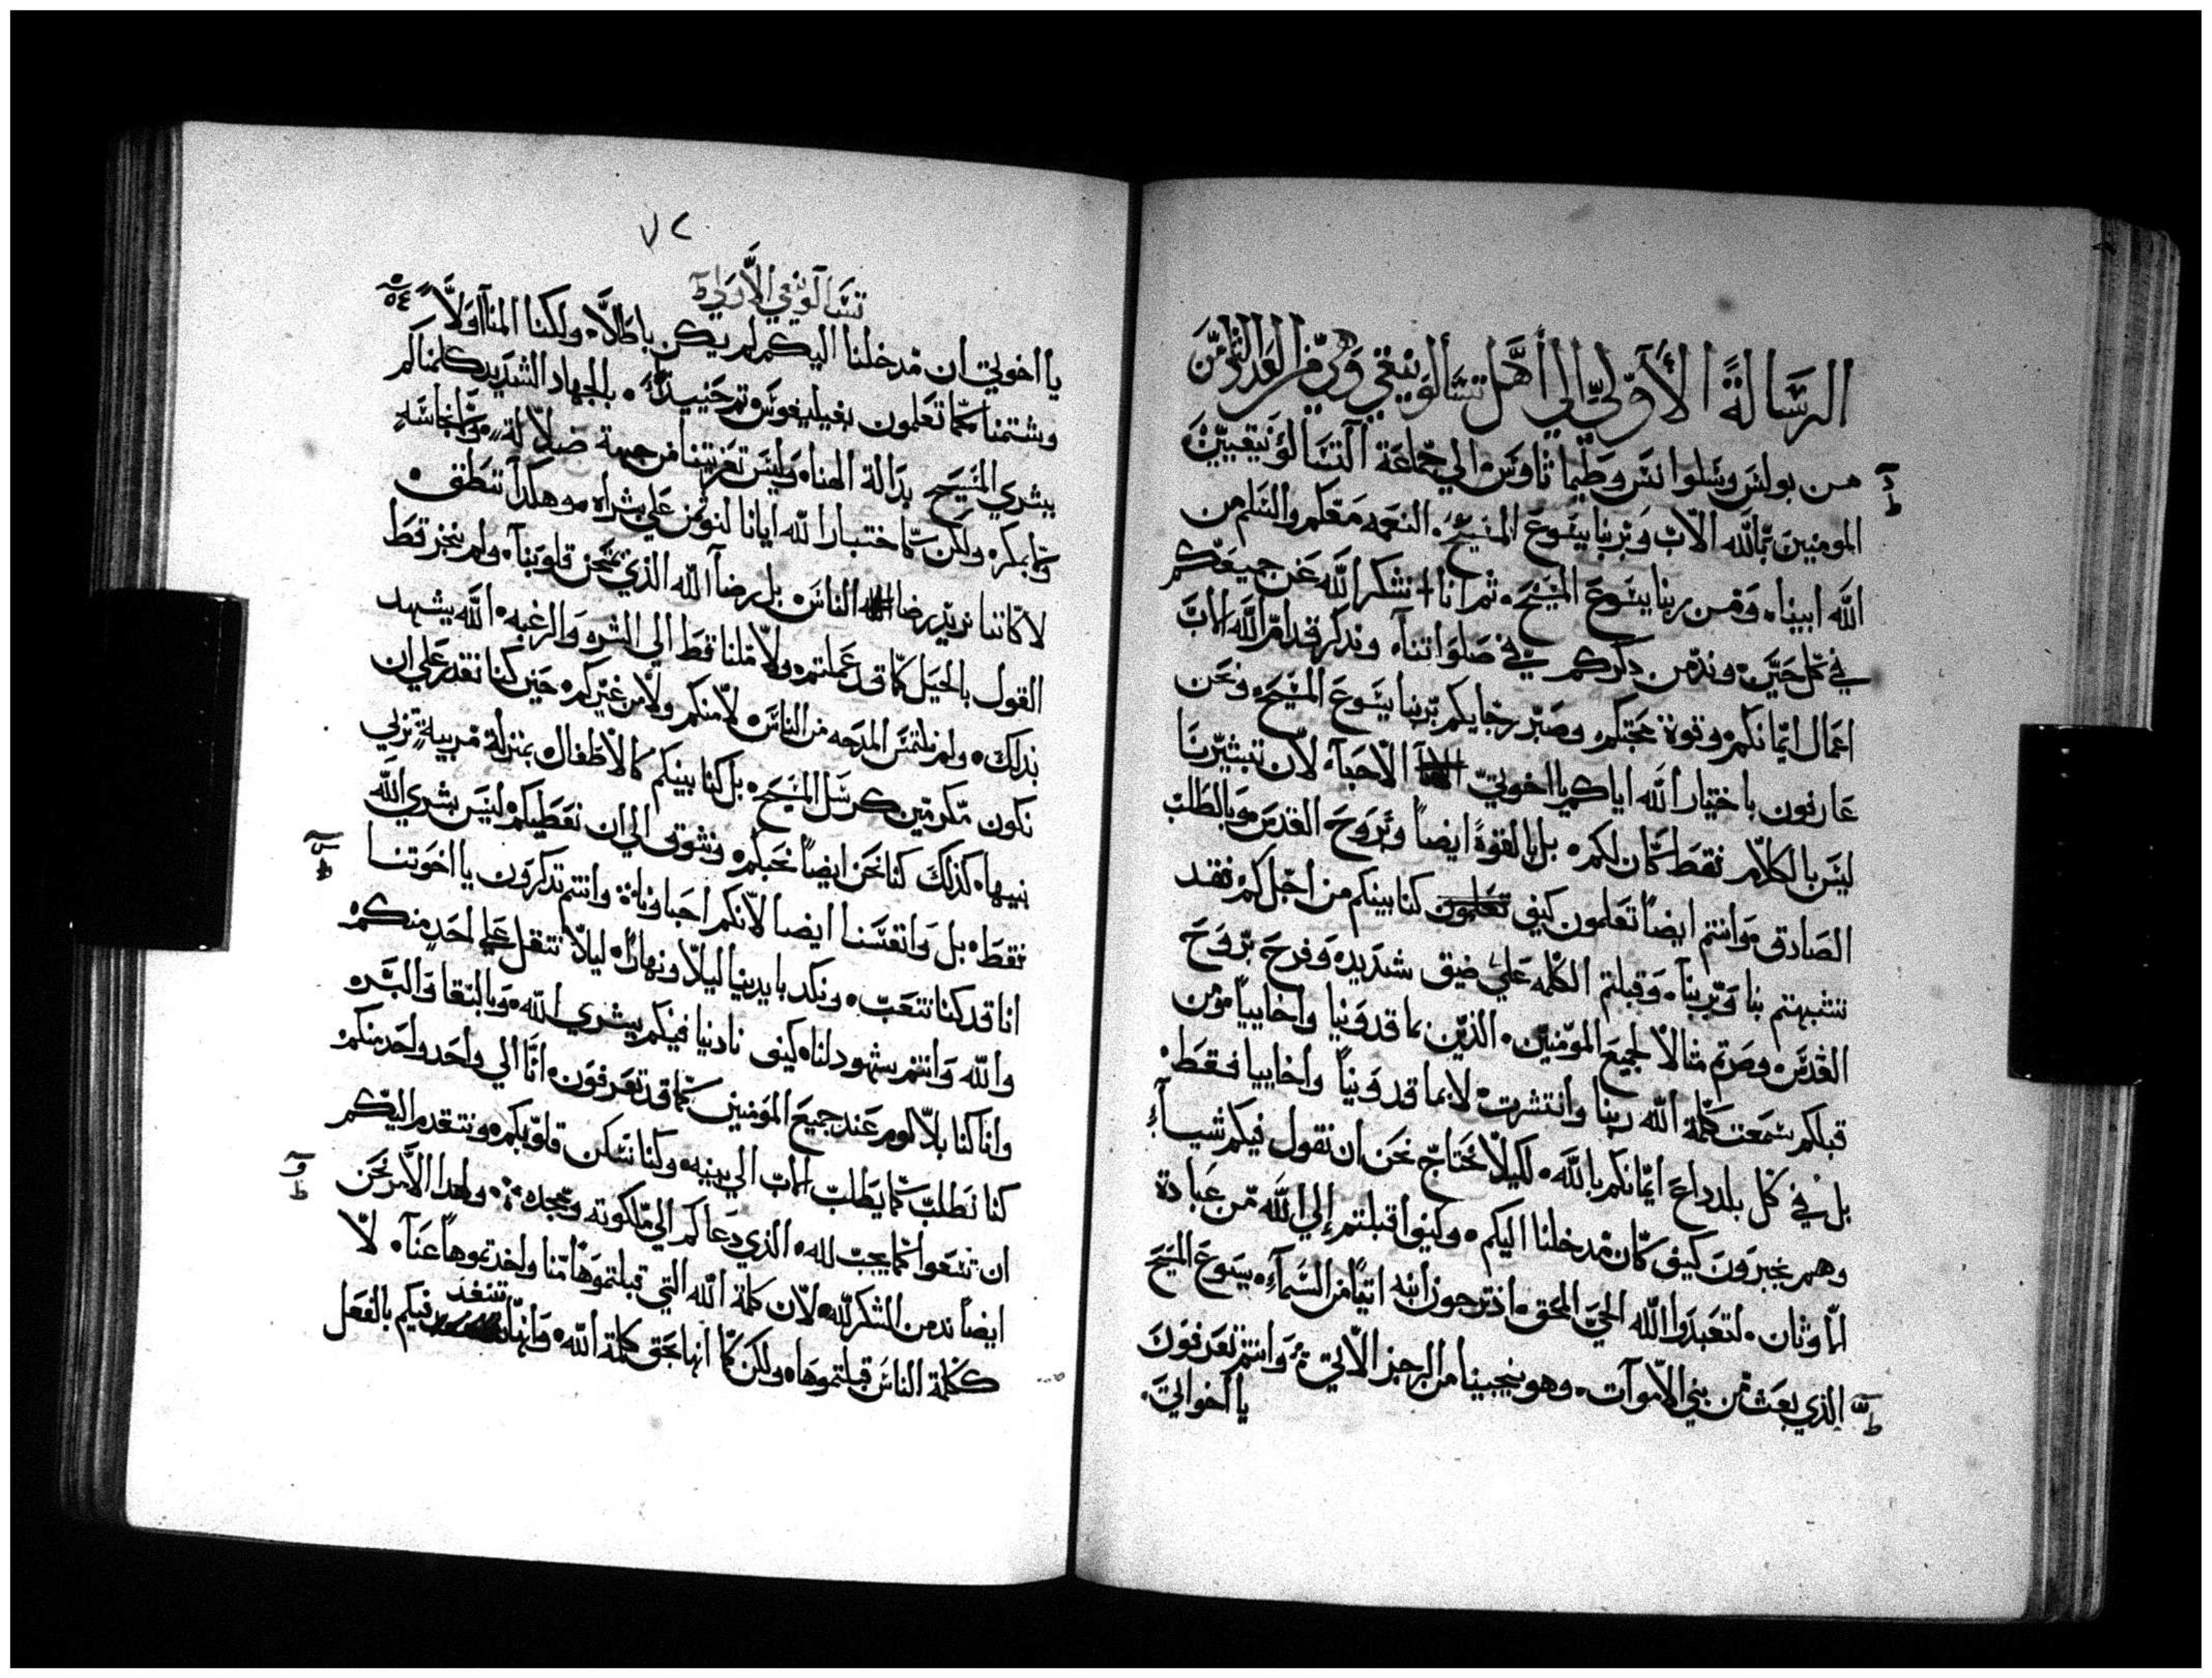 الرسالة الأولي الي أهل تسالونيقي وهي من العدد الثامن
من بولس وسلوانس وطيماثاوس الي جماعة التسالونيقيين
المومنين بالله الاب وبربنا يسوع المسيح. النعمه معكم والسلم من
الله ابينا. ومن ربنا يسوع المسيح. ثم انا نشكر الله عن جميعكم
في كل حين. وندمن دكركم في صلواتنا. وندكر قدام الله الاب
اعمال ايمانكم وقوة محبتكم. وصبر رجايكم بربنا يسوع المسيح. ونحن
عارفون باختيار الله اياكم يا اخوتي الاحبآ. لان تبشيرنا
ليس بالكلام فقط كان لكم. بل بالقوة ايضاً وبروح القدس وبالطلب
الصادق وانتم ايضاً تعلمون كيف كنا بينكم من اجلكم فقد
تشبهتم بنا وبربنا. وقبلتم الكلمه علي ضيق شديد. وفرح بروح
القدس. وصرتم مثالاً لجميع المومنين. الذين بماقدونيا واخاييا. ومن
قبلكم سمعت كلمة الله ربنا وانتشرت. لا بماقدونياً واخاييا فقط
بل في كل بلد داع ايمانكم بالله. لكيلا نحتاج نحن ان نقول فيكم شياً
وهم يخبرون كيف كان مدخلنا اليكم. وكيف اقبلتم إلي الله من عبادة
الاوثان. لتعبدوا الله الحي المحق. اذ ترجون ابنه اتياً من السمآء. يسوع المسيح
الذي بعث من بني الاموآت. وهو ينجينا من الرجز الاتي. وانتم تعرفون
يا اخواتي.
٧٢
تسالونيقي الأولي
يا اخوتي ان مدخلنا اليكم لم يكن باطلاً. ولكنا المنا اولاً
وشتمنا كما تعلمون بفيليفوس ثم حنييدٍ. بالجهاد الشديد كلمناكم
ببشري المسيح بدالة الهنا. وليس تعزيتنا من جهة ضلالة. ولا نجاسةٍ
ولا بمكر. ولكن كما اختبار الله ايانا لنوتمن علي بشراه. وهكدا ننطق.
لا كاننا نريد رضا الناس. بل رضآ الله الذي يمتحن قلوبنا. ولم ننجز قط
القول بالحيل كما قد علمتم. ولا ملنا قط الي الشره والرغبه. الله يشهد
بذلك. ولم نلتمس المدحه من الناس. لا منكم ولا من غيركم. حين كنا نقدر علي ان
نكون مكرمين كرسل المسيح. بل كنا بينكم كالاطفال. بمنزلة مربيةٍ تربي
بنيها. كذلك كنا نحن ايضاً نحبكم. ونشوق الي ان نعطيكم ليس بشري الله
فقط. بل وانفسنا ايضا لانكم احباونا. وانتم تدكرون يا اخوتنا
انا قد كنا نتعب. ونكد بايدينا ليلاً ونهاراً. ليلا نثقل علي احدٍ منكم.
والله وانتم شهود لنا. كيف نادينا فيكم ببشري الله. وبالنقا والبره
وانا كنا بلا لوم عند جميع المومنين كما قد تعرفون. انا الي واحد واحد منكم
كنا نطلب كما يطلب الاب الي بنيه. وكنا نسكن قلوبكم. ونتقدم اليكم
ان تسعوا كما يجب لله. الذي دعاكم الي ملكوته ومجده. ولهدا الامر نحن
ايضاً ندمن الشكر لله. لان كلمة الله التي قبلتموها منا واخدتموها عنآ. لا
ككلمة الناس قبلتموها. ولكن كما انها بحق كلمة الله. وانها تنفد فيكم بالفعل